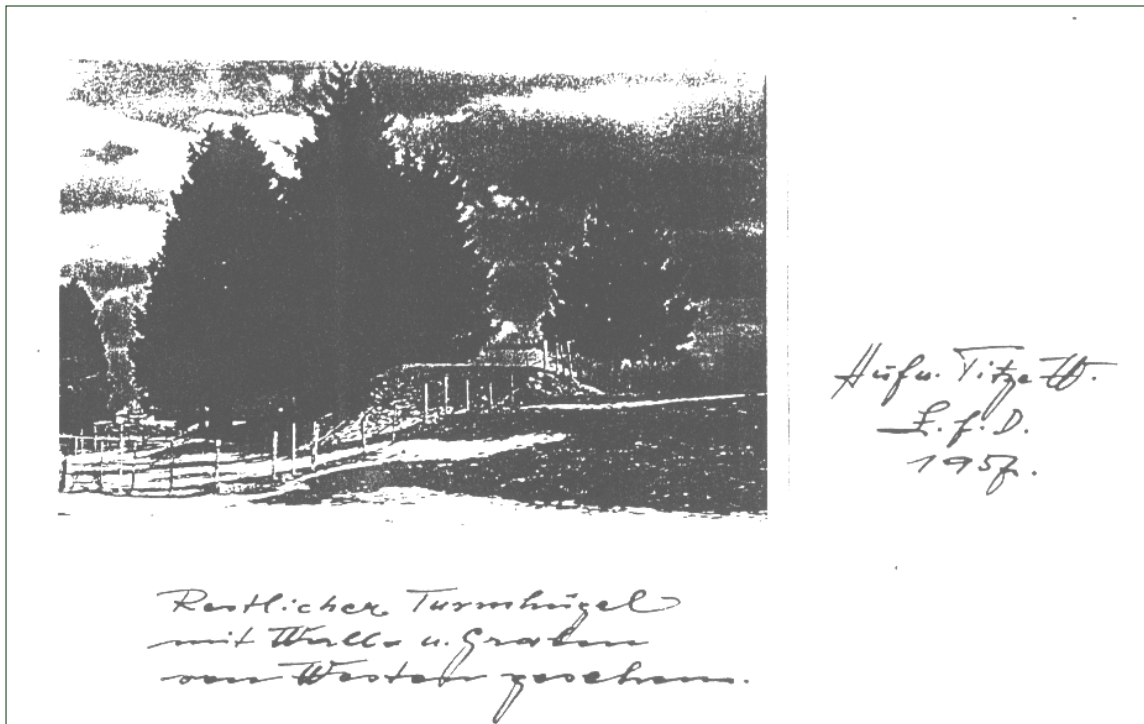 Aufn. Titze W.
L. f. D.
1957.
Restlicher Turmhügel
mit Wall- u. Graben
von Westen gesehen.